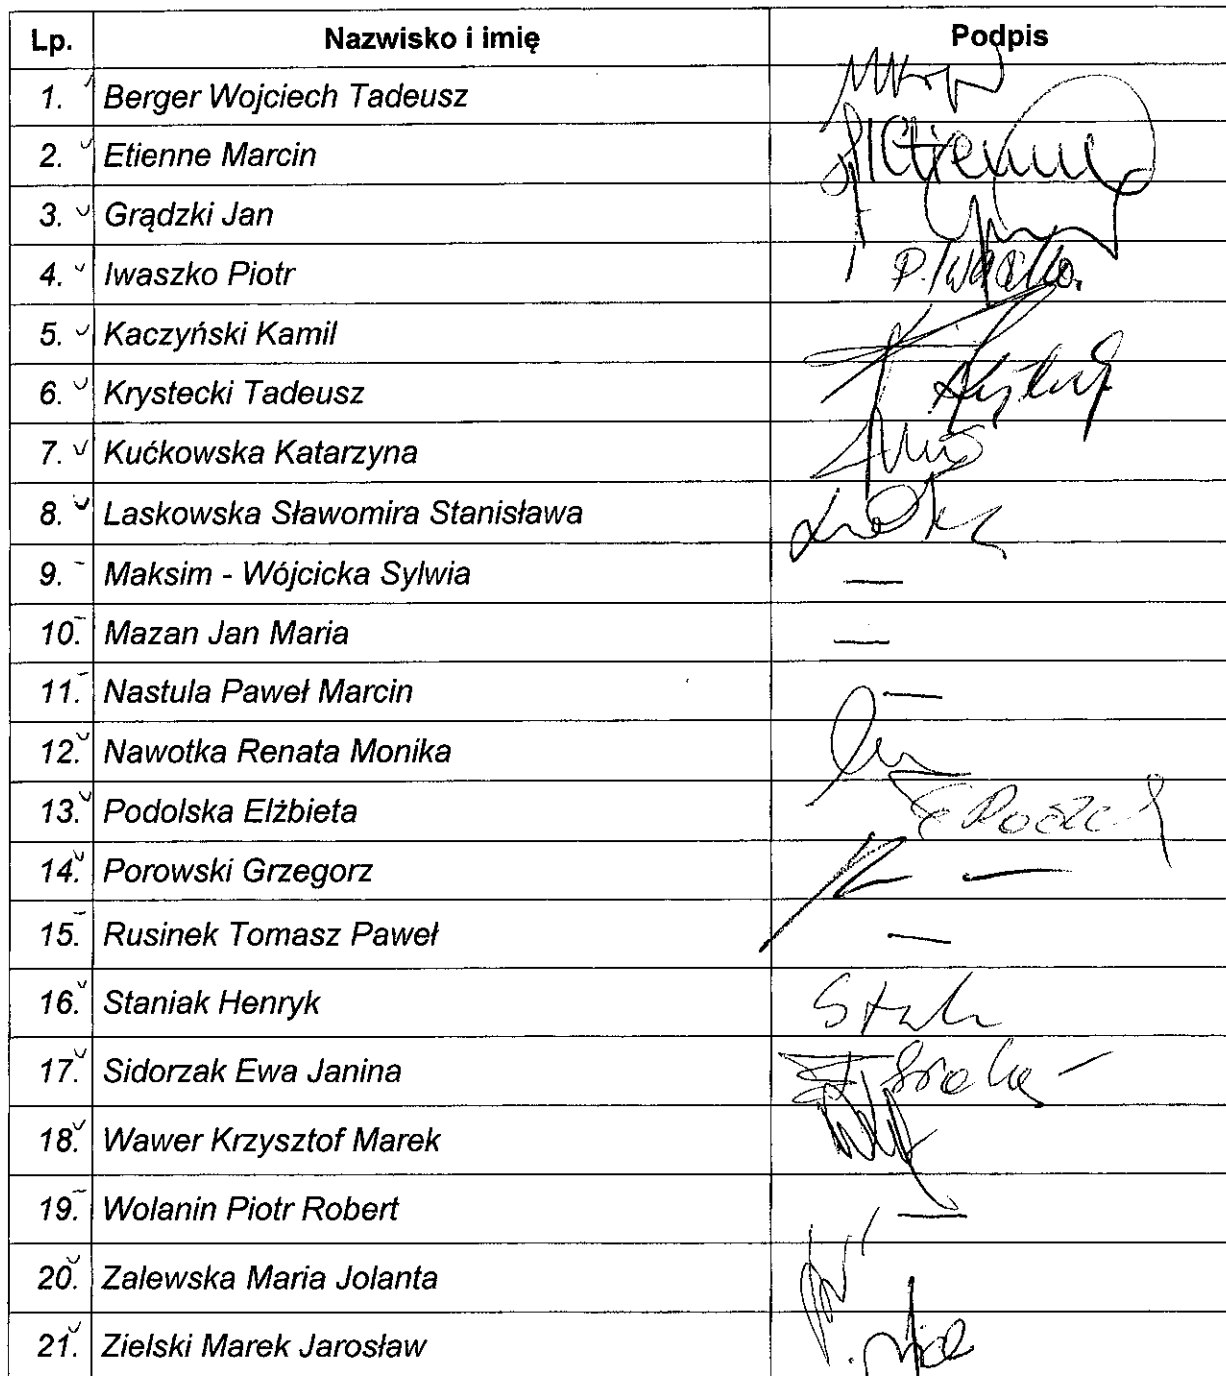 Lp. Nazwisko i imię Podpis
1. Berger Wojciech Tadeusz
2. Etienne Marcin
3. Grądzki Jan
4. Iwaszko Piotr P. Iwaszko
5. Kaczyński Kamil
6. Krystecki Tadeusz
7. Kućkowska Katarzyna
8. Laskowska Sławomira Stanisława
9. Maksim - Wójcicka Sylwia —
10. Mazan Jan Maria —
11. Nastula Paweł Marcin —
12. Nawotka Renata Monika
13. Podolska Elżbieta
14. Porowski Grzegorz —
15. Rusinek Tomasz Paweł —
16. Staniak Henryk
17. Sidorzak Ewa Janina
18. Wawer Krzysztof Marek
19. Wolanin Piotr Robert —
20. Zalewska Maria Jolanta
21. Zielski Marek Jarosław